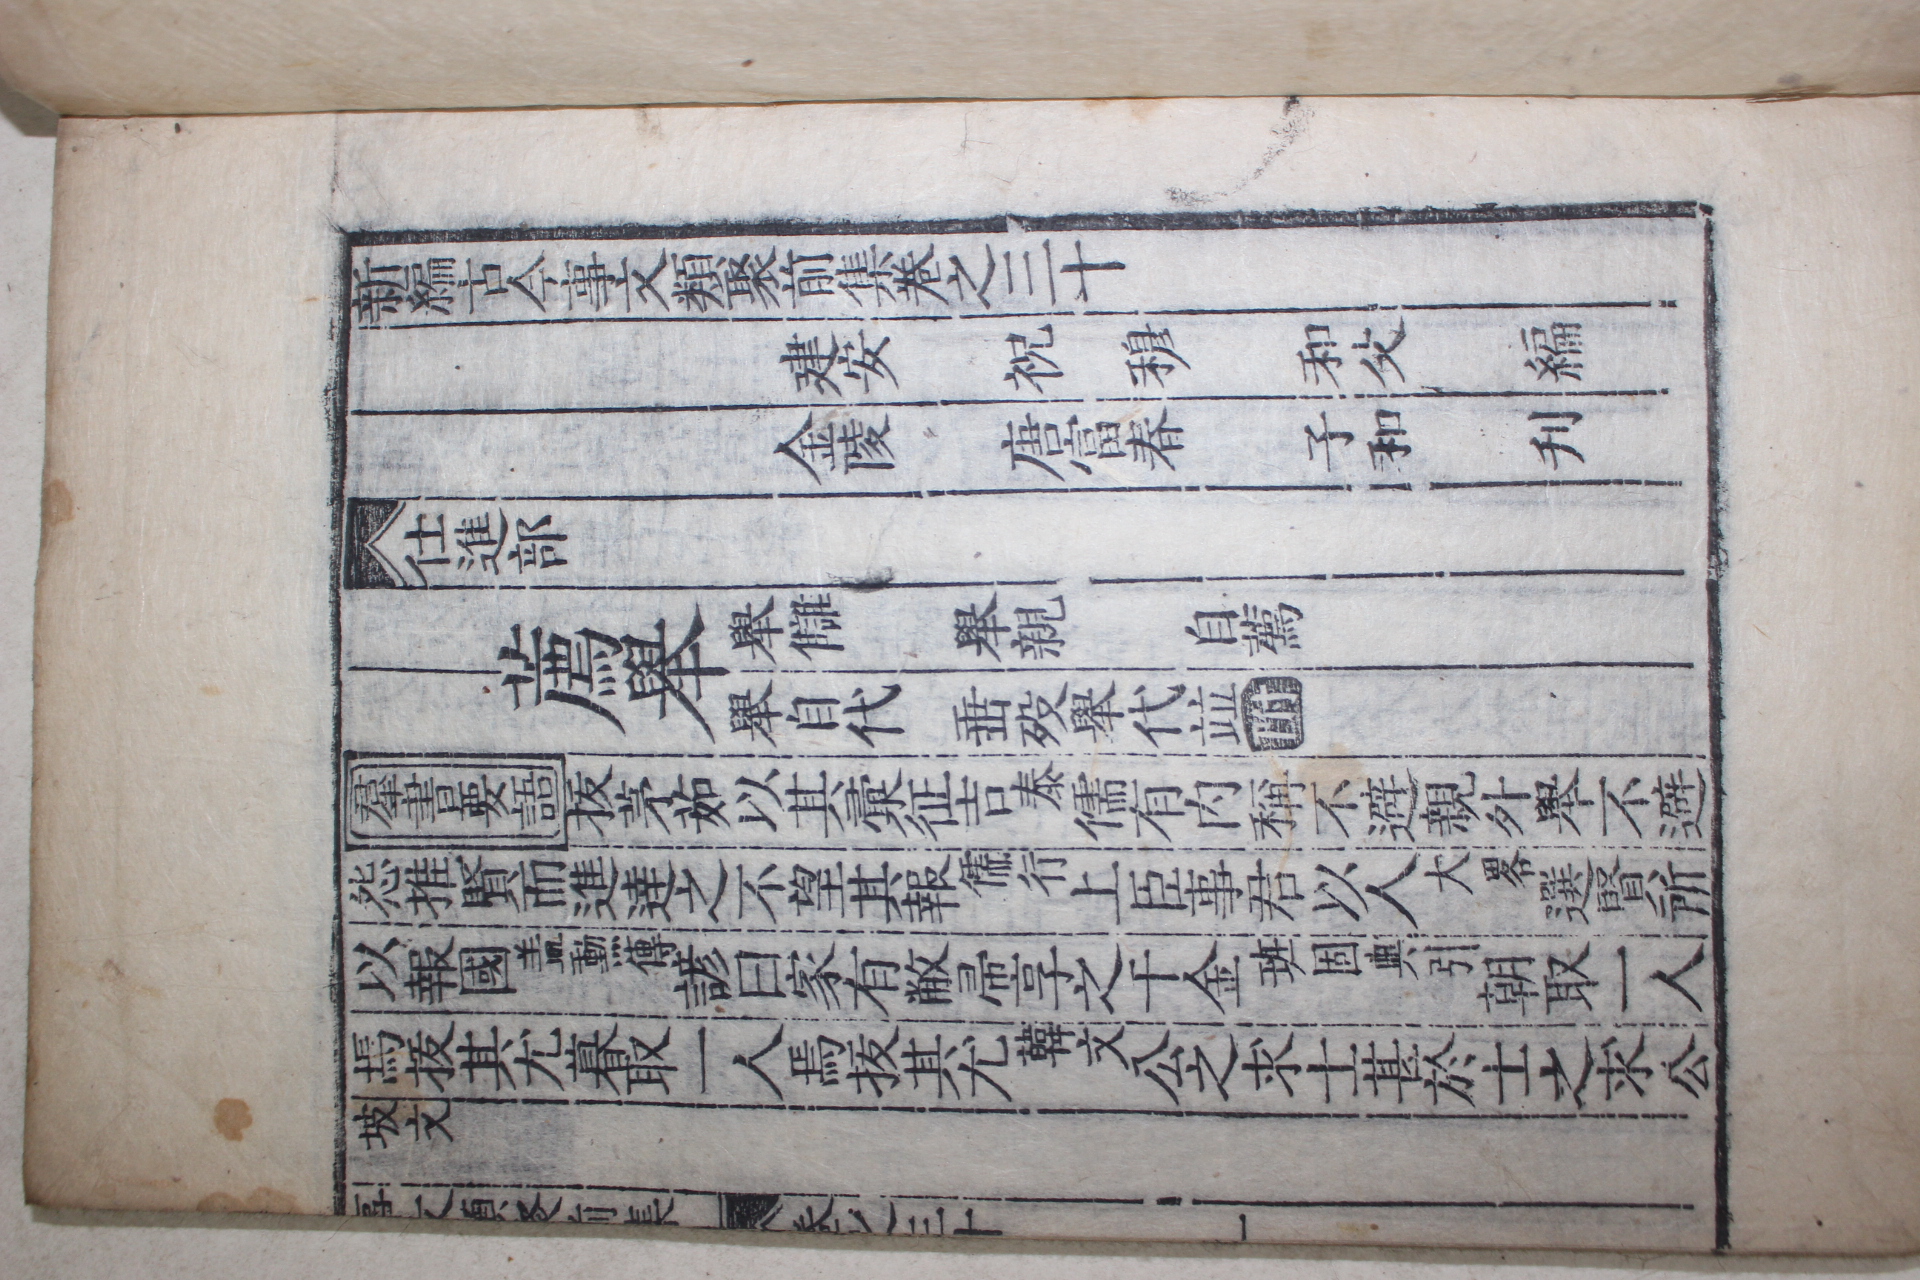 新編古今事文類聚前集卷之三十
建安 祝 穆 和父 編
金陵 唐富春 子和 刋
仕進部
薦舉 舉讎 舉親 自薦
舉自代 垂歿舉代並附
羣書要語 拔茅茹以其彙征吉泰儒有内稱不避親外舉不避
怨推賢而進達之不望其報儒行上臣事君以人大畧選賢所
以報國蓋勳傳諺曰家有敝帚享之千金班固典引朝取一人
焉拔其尤暮取一人焉拔其尤韓文公之求士甚於士之求公
坡文
事文類聚前集 卷之三十 一